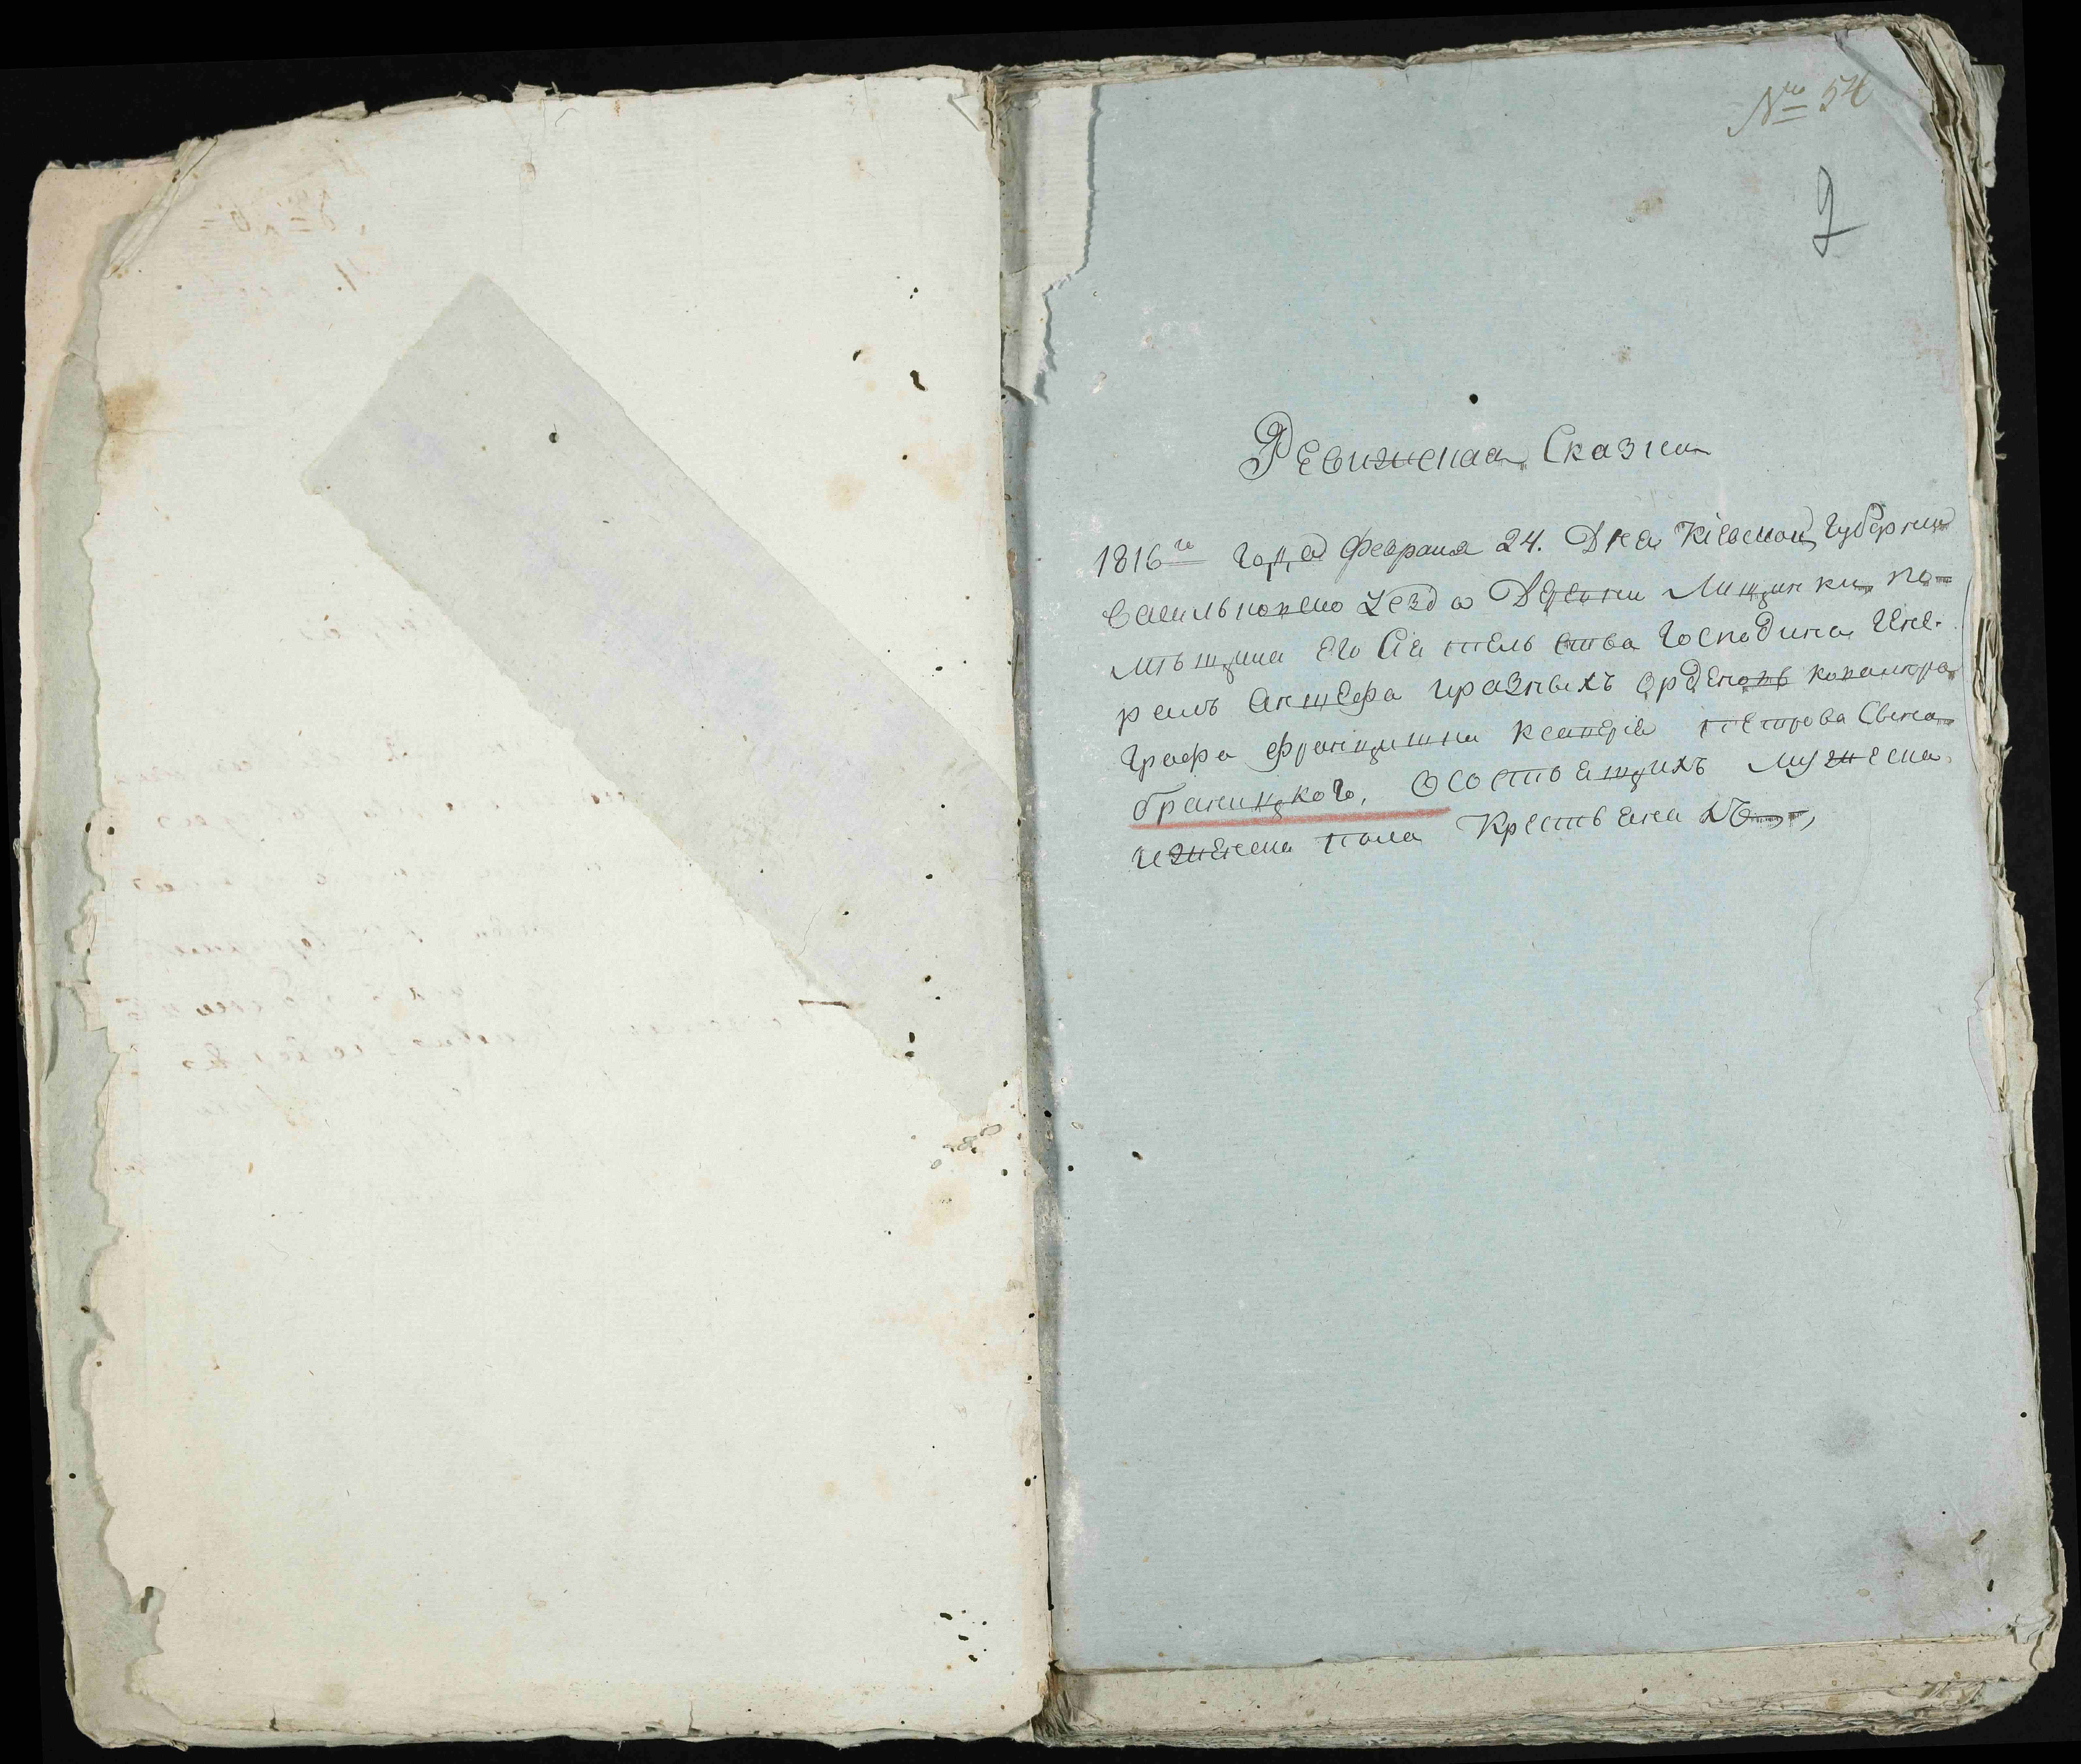 № 54
2
Ревижская Сказка
1816го года Февраля 24. Дня Кіевской Губерніи
Васильковско Уезда Деревни Лищинки по-
мѣщика Его Сіятельства Господина Гене-
ралъ Аншефа иразныхъ Орденовъ ковалера
Графа Францишка Ксаверія Петрова Сына
браницкого, Осостоящихъ мужеска
иженска пола Крестьянахъ,